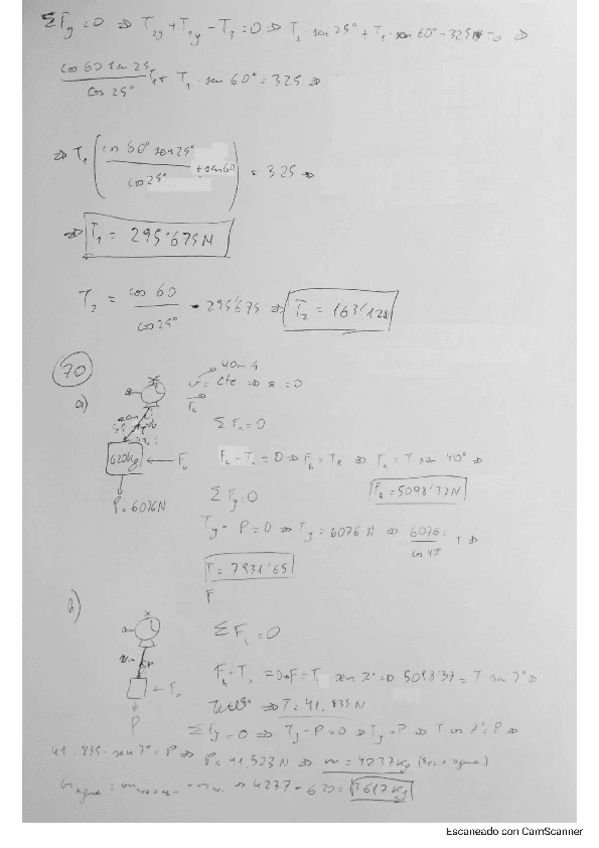 ΣFy = 0 ⇒ T2y + T1y - T3 = 0 ⇒ T2 · sen 25° + T1 · sen 60° - 325 = 0 ⇒
cos 60 sen 25 / cos 25° T1 + T1 · sen 60° = 325 ⇒
⇒ T1 ( cos 60° sen 25° / cos 25° + sen 60 ) = 325 ⇒
⇒ T1 = 295'675 N
T2 = cos 60 / cos 25° · 295'675 ⇒ T2 = 163'12
70
40 m
a) v = cte ⇒ a = 0
ΣFx = 0
620 kg Fa Fa - Tx = 0 ⇒ Fa = Tx ⇒ Fa = T · sen 40° ⇒
P = 6076 N ΣFy = 0 Fa = 5098'32 N
Ty - P = 0 ⇒ Ty = 6076 N ⇒ 6076 / cos 40° = T ⇒
T = 7931'65
b)
ΣFx = 0
Fa - Tx = 0 ⇒ F = T sen 7° ⇒ 5098'37 = T · sen 7° ⇒
P ⇒ T = 41.835 N
ΣFy = 0 ⇒ Ty - P = 0 ⇒ Ty = P ⇒ T cos 7° = P ⇒
41.835 · sen 7° = P ⇒ P = 41.523 N ⇒ m = 4237 kg
agua ⇒ 4237 - 620 = 3617 kg
Escaneado con CamScanner